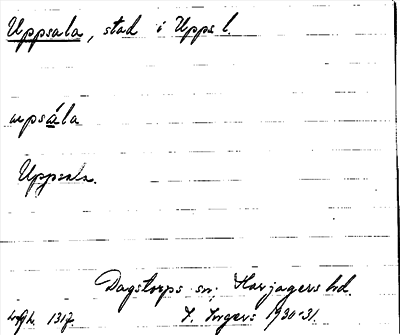 Uppsala, stad i Upps l.
upsála
Uppsala.
Dagstorps sn; Harjagers hd.
131f. I. Ingers 1930-31.